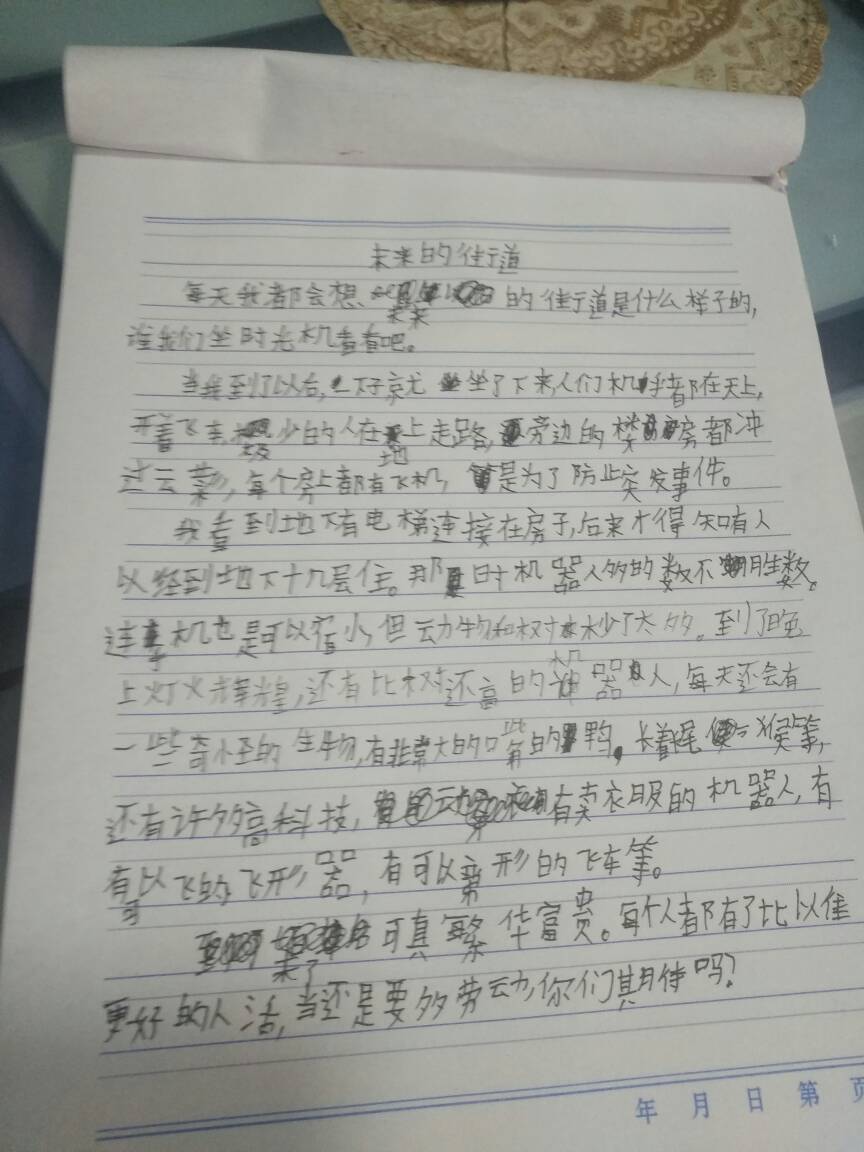 未来的街道
每天我都会想、未来的街道是什么样子的,
谁我们坐时光机看看吧。
当我到了以后,一下子就坐了下来,人们机乎都在天上,
开着飞车,极少的人在地上走路,旁边的楼房都冲
过云菜,每个房上都有飞机,是为了防止突发事件。
我看到地下有电梯连接在房子,后来才得知有人
以经到地下十几层住。那时机器人多的数不胜数。
连手机也是可以宿小,但动物和树木少了大多。到了晚
上灯火辉煌,还有比树还高的机器人,每天还会有
一些奇怪的生物,有非常大的嘴的鸭,长着尾的猴等,
还有许多高科技,有卖衣服的机器人,有
有可以飞的飞形器,有可以变形的飞车等。
未来了可真繁华富贵。每个人都有了比以隹
更好的人活,当还是要多劳动,你们期待吗?
年 月 日 第 页